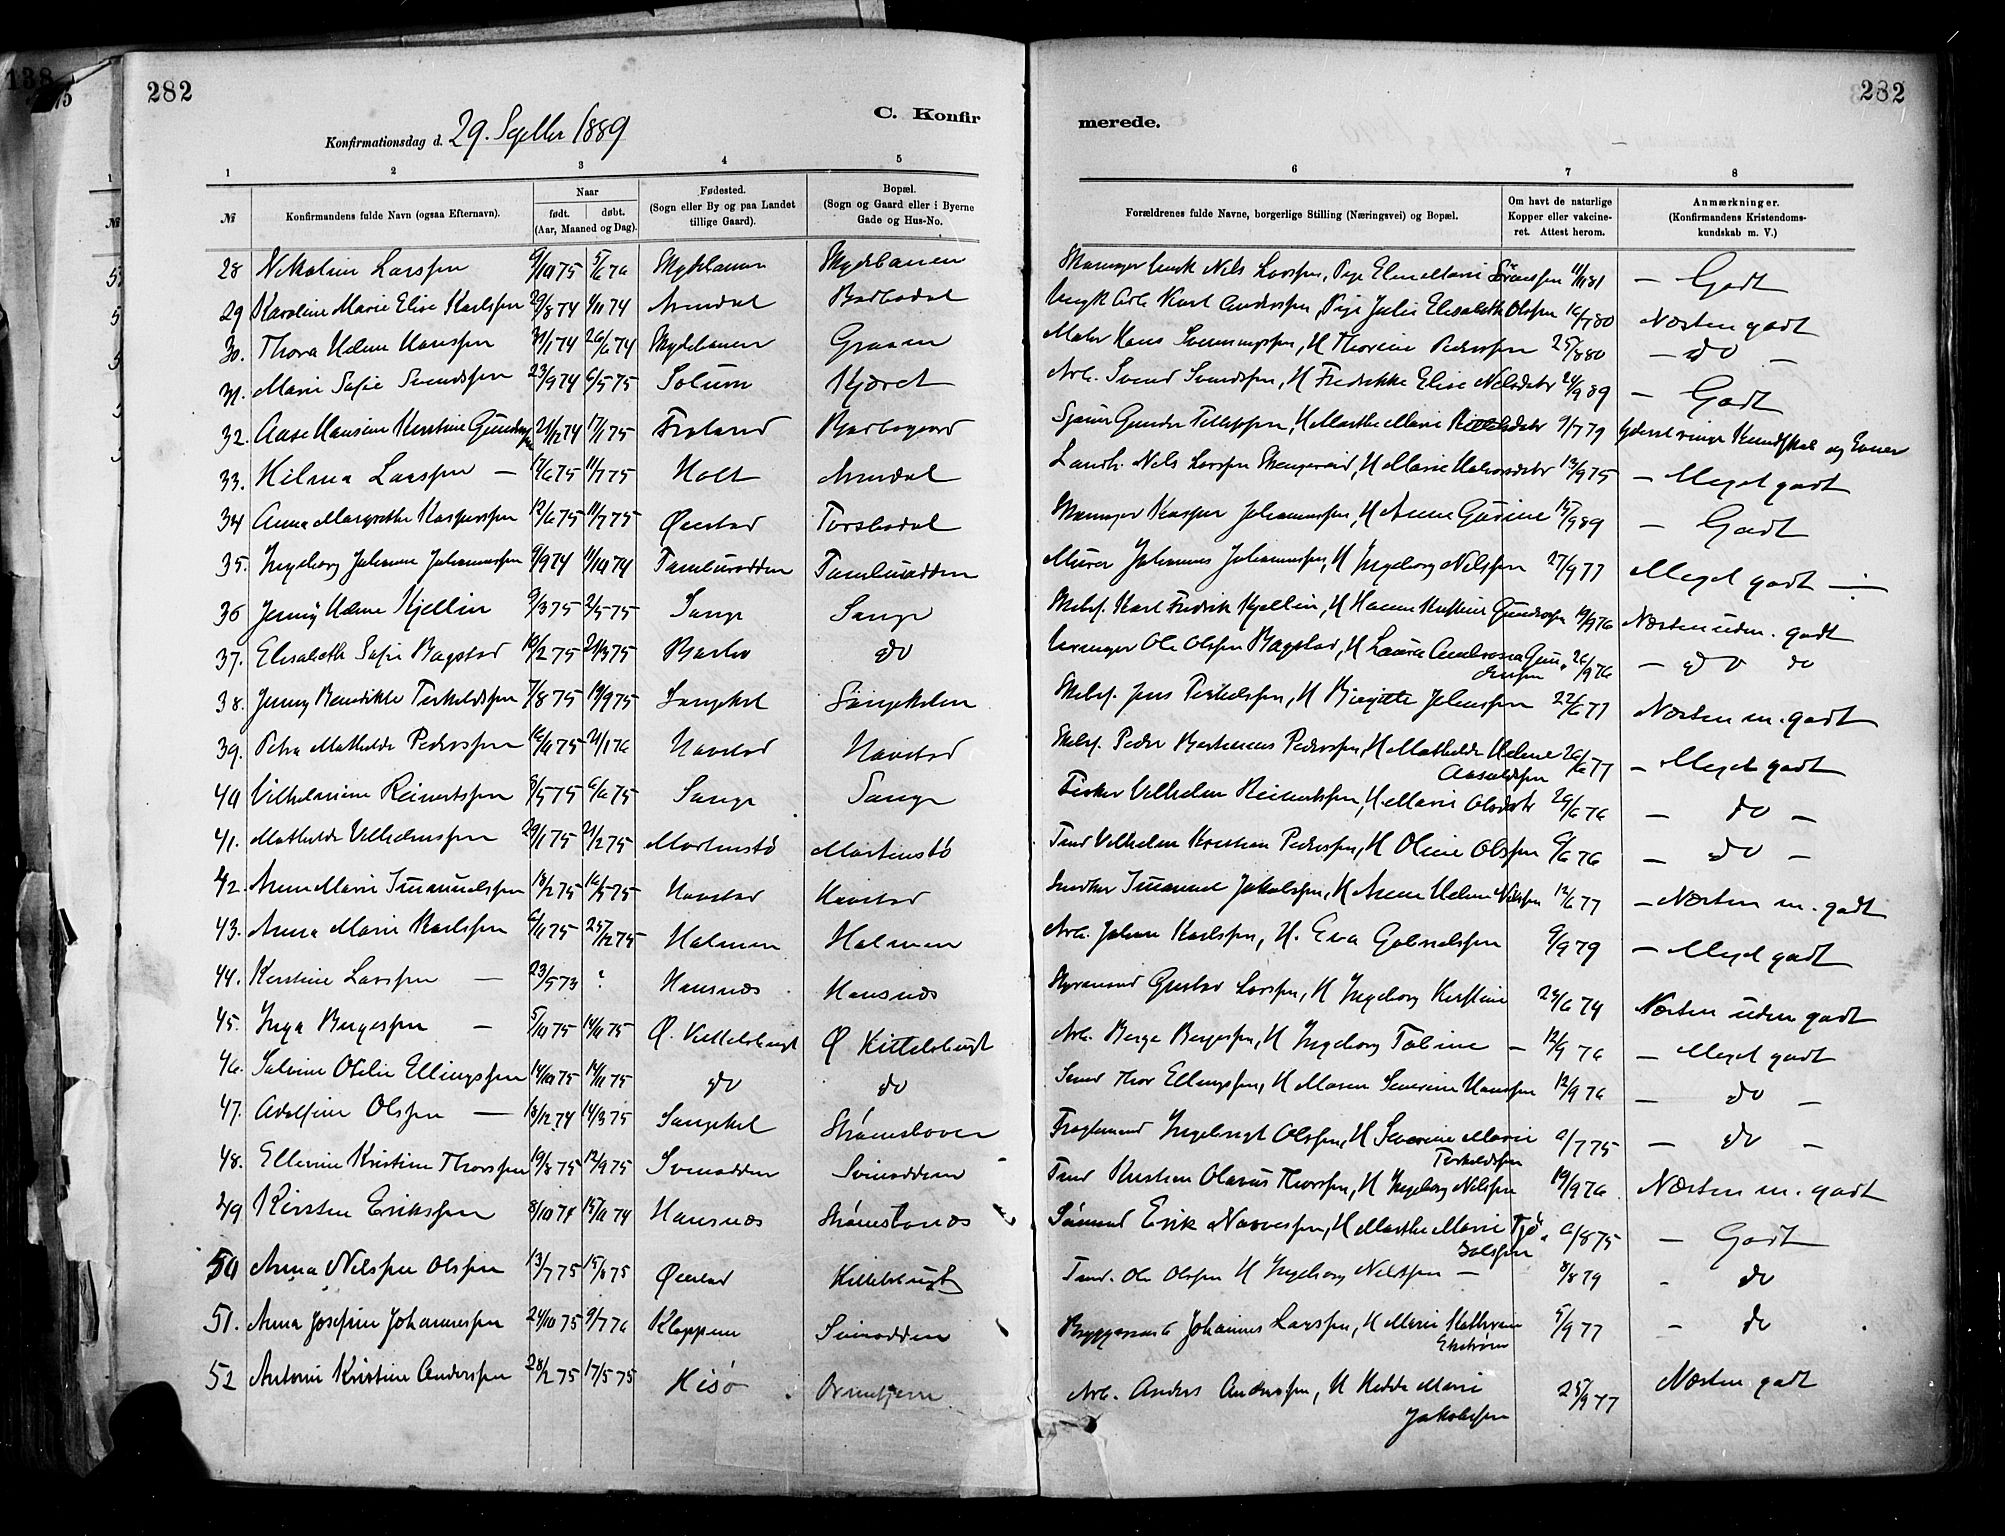 138
282
282
C. Konfir
merede.
Konfirmationsdag d. 29. Septbr 1889
1 2 3 4 5 6 7 8
№ Konfirmandens fulde Navn (ogsaa Efternavn). Naar født. døbt. (Aar, Maaned og Dag). Fødested. (Sogn eller By og paa Landet tillige Gaard). Bopæl. (Sogn og Gaard eller i Byerne Gade og Hus-No. Forældrenes fulde Navne, borgerlige Stilling (Næringsvei) og Bopæl. Om havt de naturlige Kopper eller vakcineret. Attest herom. Anmærkninger. (Konfirmandens Kristendomskundskab m. V.)
28 Nikoline Larssen 9/10 75 5/6 76 Skydebanen Skydebanen Nils Larssen, Pige Elen Marie Sørenssen 11/11 81 — Godt
29 Karoline Marie Elise Karlssen 29/8 74 1/11 74 Arendal Barbodal Karl Anderssen, Pige Julie Elisabeth Olssen 16/7 80 Næsten godt
30. Thora Helene Hanssen 31/1 74 26/6 74 Skydebanen Graaen Maler Hans Svenningssen, H Thorine Pederssen 25/8 80 — do —
31. Marie Sofie Svendssen 23/9 74 6/5 75 Solum Kjæret Arb. Svend Svendssen, H Fredrikke Elise Nilsdatr 24/9 89 — Godt
32. Aase Hansine Kirstine Gunderssen 21/12 74 17/1 75 Froland Barbogaard Gunder Tellefssen, H Marthe Marie 9/7 79 yderst ringe Kundskab og Evner
33. Hilma Larssen — 17/6 75 11/7 75 Holt Arendal Landh. Nils Larssen H Marie Halvorsdatr 13/9 75 — Meget godt
34 Anna Margrethe Kasperssen 12/6 75 11/7 75 Øiestad Torsbodal Kasper Johannessen, H Anne Gurine 15/9 89 — Godt
35. Ingeborg Johanne Johannessen 9/9 74 11/10 74 Tamburodden Tambuodden Murer Johannes Johannessen, H Ingeborg Nilssen 27/9 77 Meget godt —
36 Jenny Helene Kjellin 9/3 75 2/5 75 Sange Sange Skibsf. Karl Fredrik Kjellin, H Hanne Kirstine Gunderssen 19/9 76 Næsten udm. godt
37. Elisabeth Sofie Bagstad 10/2 75 21/3 75 Barbo do Ole Olssen Bagstad, H Laura Ambrosia Gun-
derssen 26/9 76 — do do
38. Jenny Benedikte Terkeldssen 7/8 75 19/9 75 Songekil Songekilen Skibsf. Jens Terkelssen, H Birgitte Jolenssen 22/6 77 Næsten m. godt
39. Petra Mathilde Pederssen 16/11 75 21/1 76 Havstad Havstad Skibsf. Peder Pederssen, H Mathilde Helene
Aanoldssen 26/6 77 — Meget godt
40 Vilhelmine Reinertssen 8/5 75 6/6 75 Sange Sange Fisker Vilhelm Reinertssen, H Marie Olsdatr 29/6 76 — do —
41. Mathilde Vilhelmssen 29/1 75 21/2 75 Mortenstø Mortenstø Tmd Vilhelm Kristian Pederssen, H Oline Olssen 9/6 76 — do —
42. Anne Marie Imanuelssen 18/2 75 16/5 75 Havstad Havstad Snedker Imanuel Jakobssen, H Anne Helene Nilssen 12/6 77 — Næsten m. godt
43. Anna Marie Karlssen 6/11 75 25/12 75 Holmen Holmen Arb. Johan Karlssen, H. Eva Gabrielssen 9/9 79 — Meget godt
44. Kirstine Larssen — 23/5 73 ? Hansnæs Hansnæs Styrmand Gustav Larssen, H Ingeborg Kirstine 24/6 74 Næsten uden godt
45. Inga Bergessen — 5/10 75 14/11 75 Ø. Kittelsbugt Ø Kittelsbugt Arb. Berge Bergessen, H Ingeborg Tobine — 12/9 76 — Meget godt
46. Salvine Otelie Ellingssen 14/10 75 14/11 75 do do Tmd Thor Ellingssen, H Maren Severine Hanssen 12/9 76 — do —
47. Adolfine Olssen — 18/12 74 14/3 75 Songekil Strømsboveien Ingebrigt Olssen, H Severine Marie
Terkeldssen 6/7 75 — do —
48. Ellevine Kristine Thorssen 19/8 75 12/9 75 Svinodden Svinodden Tmd Kristian Olavus Thorssen, H Ingeborg Nilssen 19/9 76 Næsten m. godt
49 Kirsten Erikssen 8/10 74 15/11 74 Hansnæs Strømsbonæs Sømand Erik H Marthe Marie Tjø-
dolssen 6/8 75 — Godt
50 Anna Nilssen Olssen 13/7 75 15/8 75 Øiestad Kittelsbugt Tmd. Ole Olssen H Ingeborg Nilssen — 8/8 79 - do
51. Anna Josefine Johannessen 24/10 75 9/7 76 Kloppene Svinodden Johannes Larssen, H Marie Kathrine
Ekstrøm 5/9 77 — do
52 Antonie Kristine Anderssen 28/2 75 17/5 75 Hisø Ormetjern Arb. Anders Anderssen, H Hedda Marie
Jakobssen 25/9 77 Næsten godt